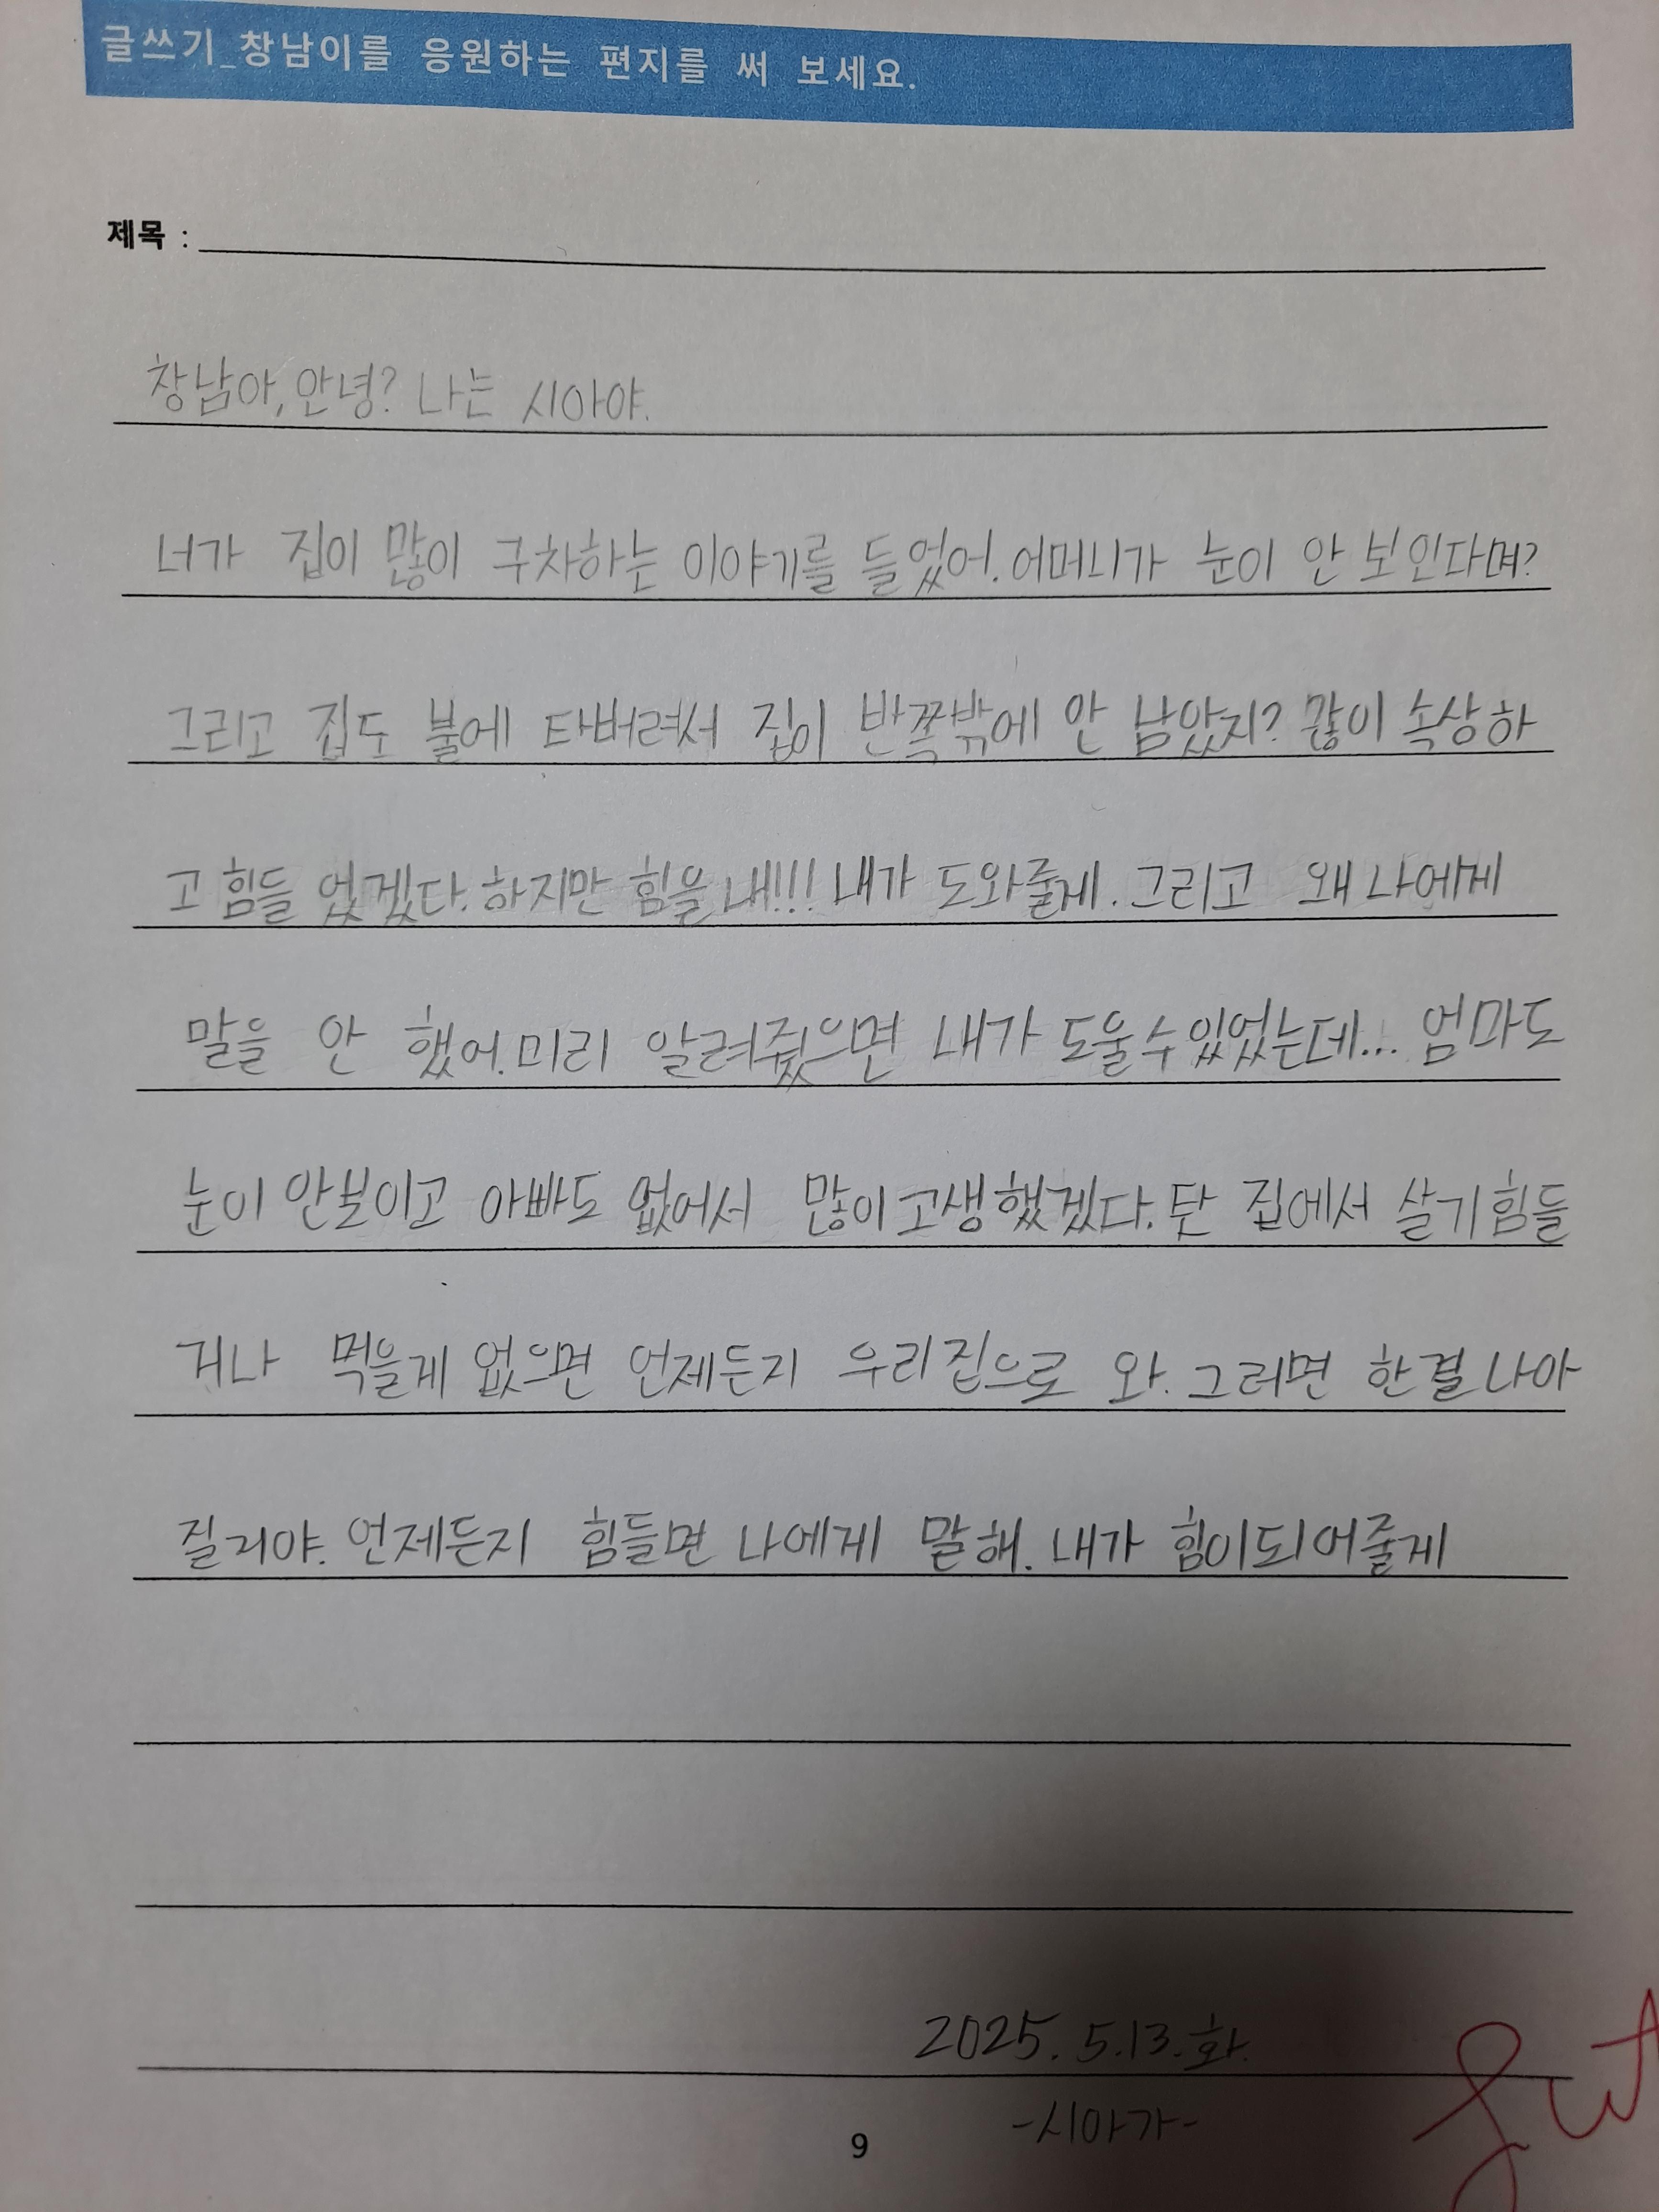 글쓰기_창남이를 응원하는 편지를 써 보세요.
제목 :
창남아, 안녕? 나는 시아야.
너가 집이 많이 구차하는 이야기를 들었어. 어머니가 눈이 안 보인다며?
그리고 집도 불에 타버려서 집이 반쪽밖에 안 남았지? 많이 속상하
고 힘들 었겠다. 하지만 힘을 내!!! 내가 도와줄게. 그리고 왜 나에게
말을 안 했어. 미리 알려줬으면 내가 도울 수 있었는데... 엄마도
눈이 안보이고 아빠도 없어서 많이 고생했겠다. 탄 집에서 살기 힘들
거나 먹을게 없으면 언제든지 우리집으로 와. 그러면 한결 나아
질거야. 언제든지 힘들면 나에게 말해. 내가 힘이되어줄게
2025. 5.13.화.
-시아가-
9